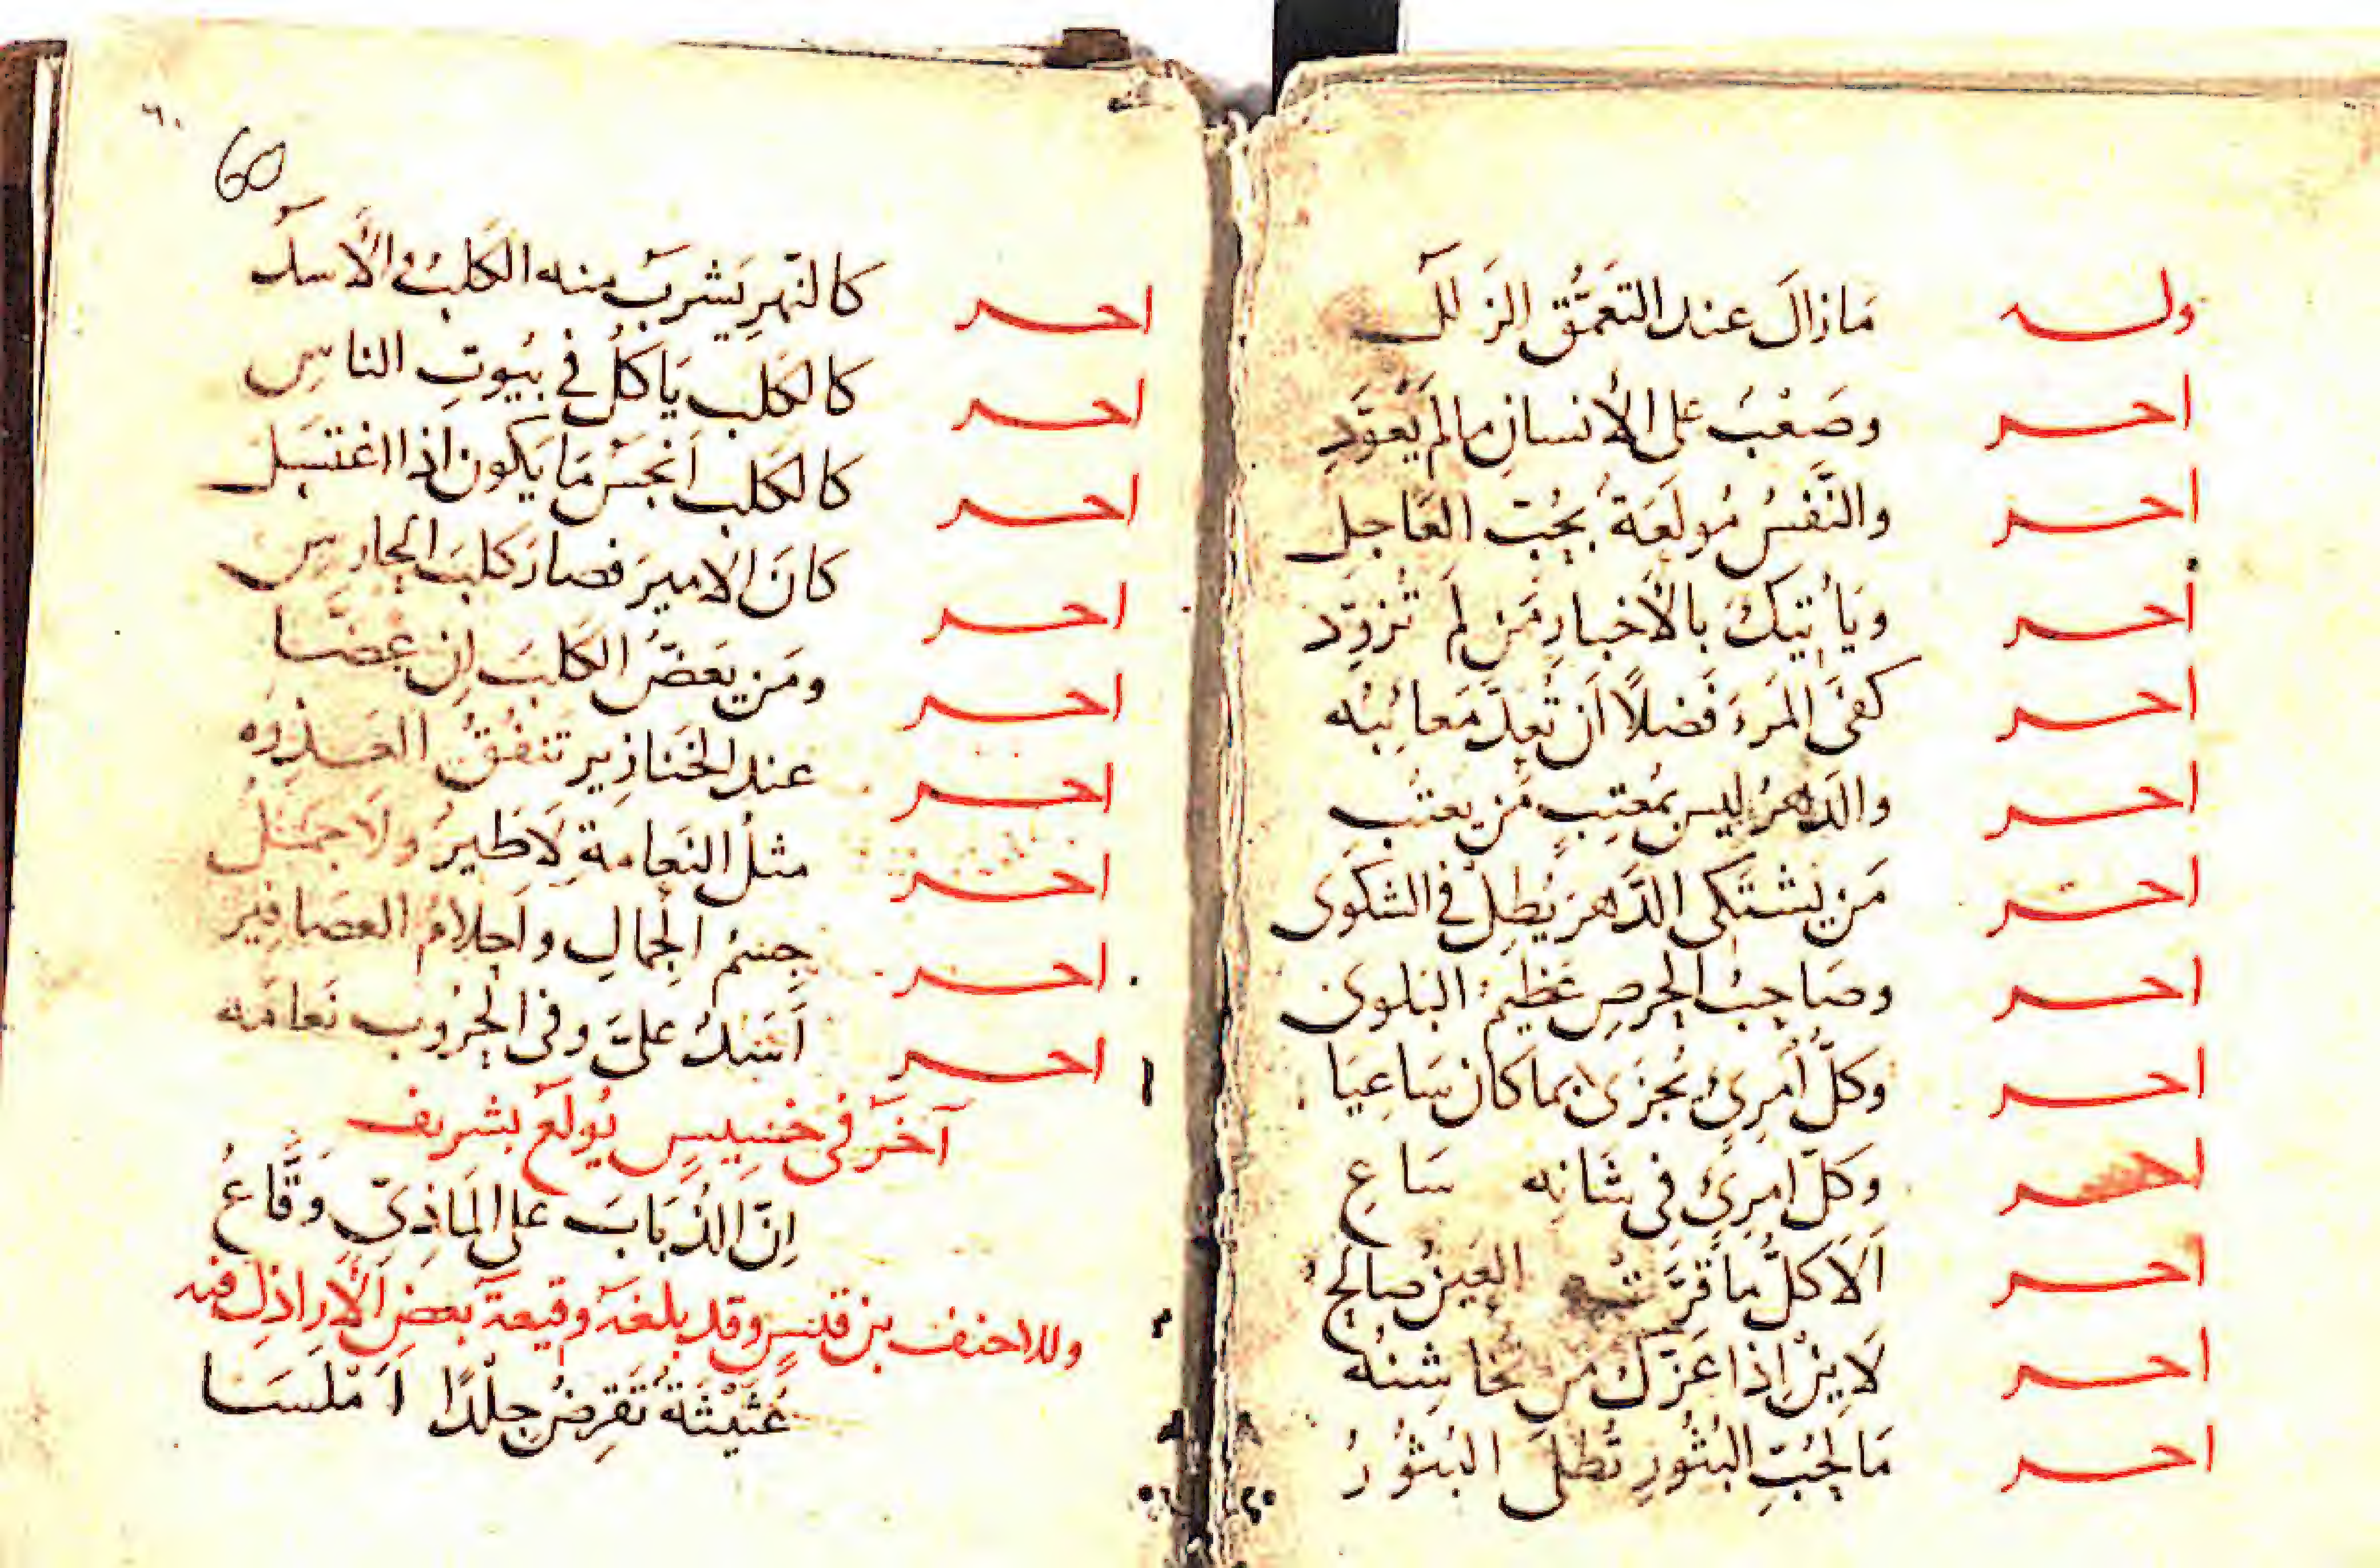 وله مَا زالَ عند التعمُّق الزلل
آخر وصَعْبٌ على الأنسانِ ما لم يُعَوَّدِ
آخر والنَّفسُ مُولَعَةٌ بحُبّ العَاجلِ
آخر ويَأتيكَ بالأخبارِ مَن لم تُزوّد
آخر كفَى المَرءَ فَضلاً اَن تُعدَّ مَعائبُه
آخر والدَهرُ ليس بمُعتِبٍ مَن يعتب
آخر مَن يَشتَكى الدَّهرَ يُطِلْ في الشكوى
آخر وصَاحبُ الحِرصِ عَظيمُ البلوى
آخر وكلُّ أمرِئ يُجزَى بما كان سَاعِيَا
آخر وكلّ امرِئٍ في شَانِه سَاعِ
آخر اَلاَ كلُّ ما قَرَّت به العَينُ صالحُ
آخر لاَيِنْ اِذا عَزّكَ من تخاشِنُه
آخر مَا لِحُبّ البُثُورِ تُطلَى البُثُورُ
٦٠
60
آخر كالنّهرِ يَشربُ منه الكَلبُ والأَسدُ
آخر كالكلبِ يَاكلُ في بُيوتِ الناسِ
آخر كالكلبِ اَنجسُ مَا يَكون اِذا اغتسَل
آخر كانَ الاميرَ فصارَ كلبَ الحارسِ
آخر ومَن يَعَضُّ الكلبَ اِن عَضَّا
آخر عند الخَنازِيرِ تَنفُقُ العَذِرَه
آخر مثلُ النَعامةِ لاَ طَيرٌ ولاَ جَمَلُ
آخر جِسمُ الجِمالِ واَحلامُ العصَافيرِ
آخر اَسَدٌ علىَّ وفى الحُرُوب نَعامَه
آخَر فى خَسِيسٍ يُولَعُ بشريف
اِنّ الذُبَابَ على المَاذِيّ وَقَّاعُ
وللاحنف بن قيس وقد بلغَهُ وقيعةُ بعضِ الأراذِلِ فيه
عُثَيْثَةٌ تَقرِضُ جلْدًا اَمْلَسَا